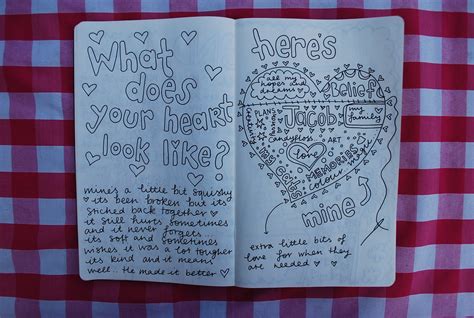 What
does
your heart
look like?
mines a little bit squishy
its been broken but its
stiched back together
it still hurts sometimes
and it never forgets...
its soft and sometimes
wishes it was a lot tougher
its kind and it means
well... He made it better
here's
all my
hopes and
dreams
Belief
PLANS
Jacob
my
family
Candyfloss..
ART
love
MEMORIES
colour
mine
extra little bits of
love for when they
are needed